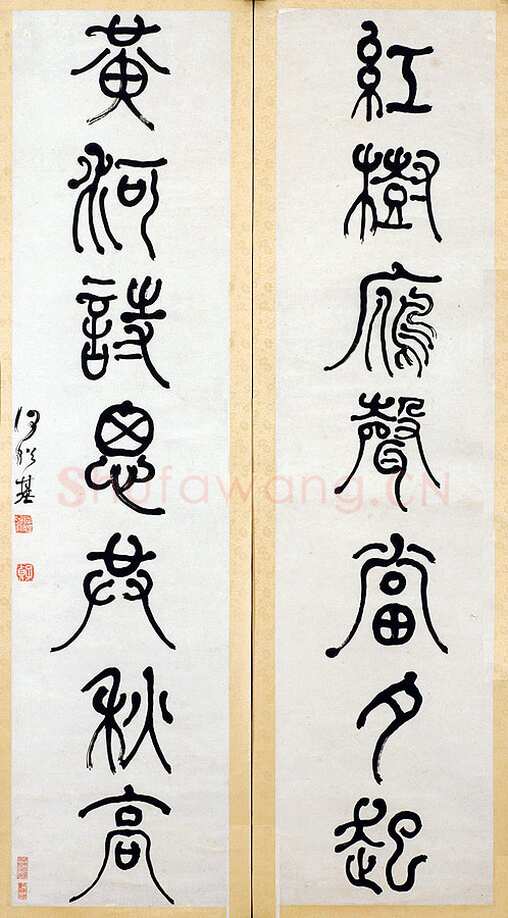 紅樹鴈聲當夕起
黃河詩思共秋高
何紹基
Shufawang.CN